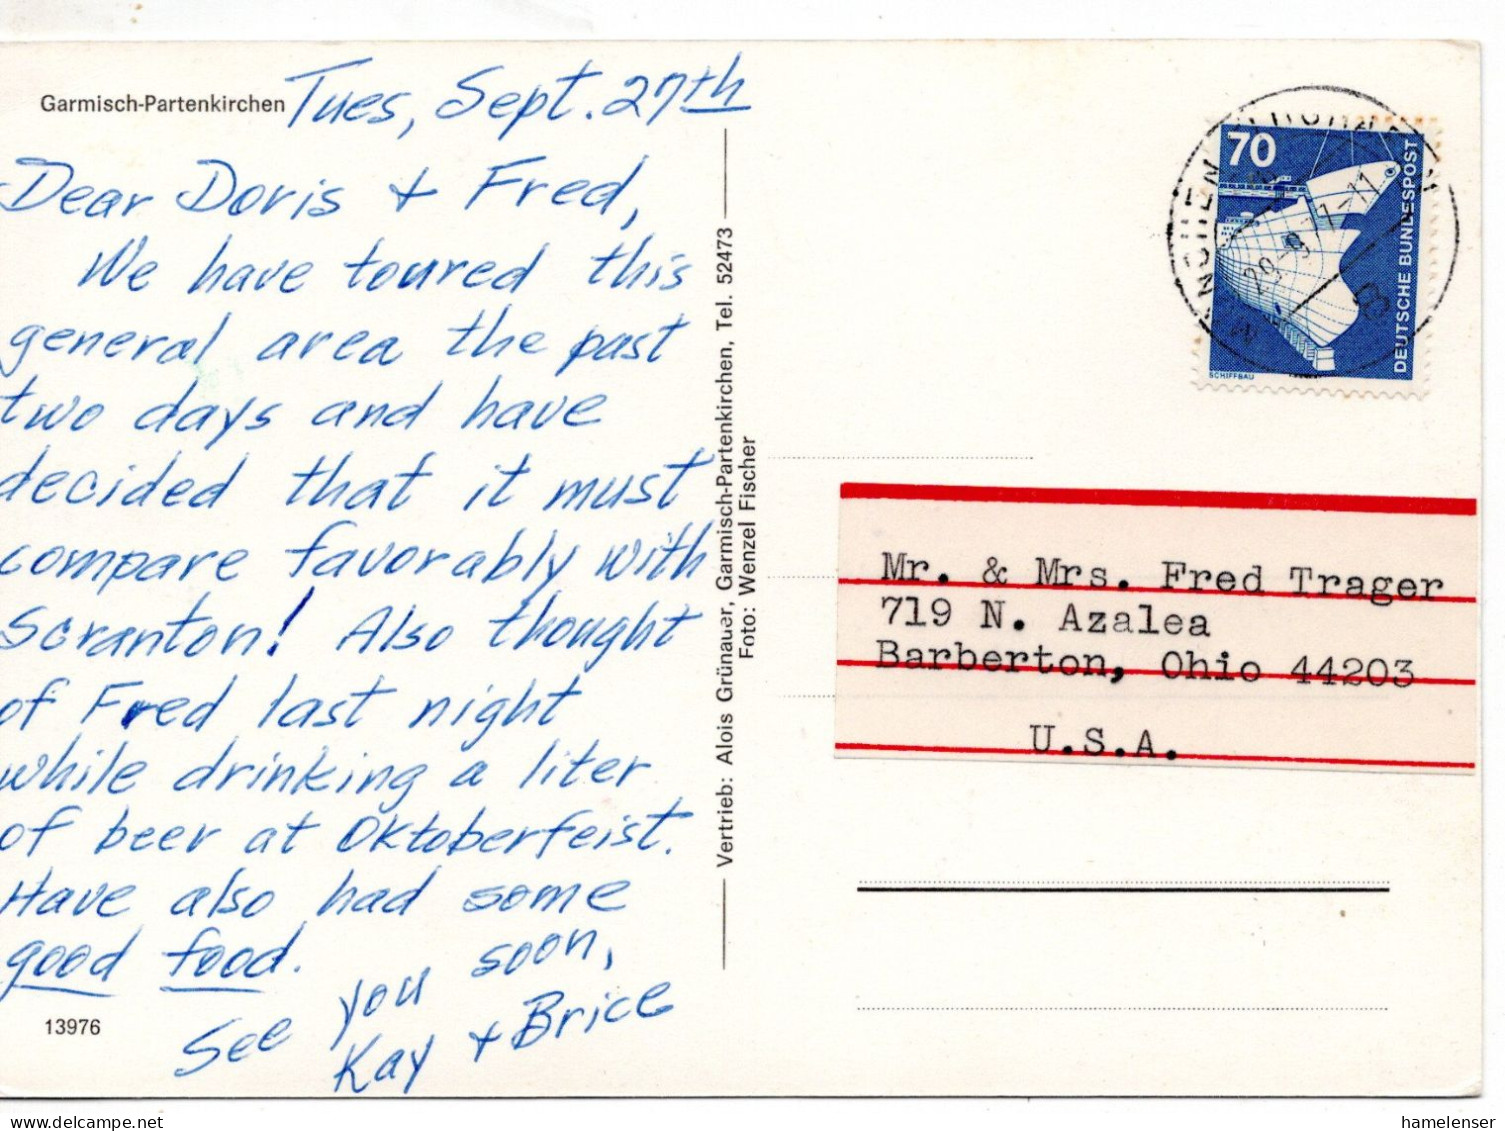 Garmisch-Partenkirchen
Tues, Sept. 27th
Dear Doris + Fred,
We have toured this
general area the past
two days and have
decided that it must
compare favorably with
Scranton! Also thought
of Fred last night
while drinking a liter
of beer at Oktoberfeist.
Have also had some
good food.
See you soon,
Kay + Brice
13976
Vertrieb: Alois Grünauer, Garmisch-Partenkirchen, Tel. 52473
Foto: Wenzel Fischer
70
DEUTSCHE BUNDESPOST
SCHIFFBAU
29-9.77-11
Mr. & Mrs. Fred Trager
719 N. Azalea
Barberton, Ohio 44203
U.S.A.
hamelenser.net
hamelenser